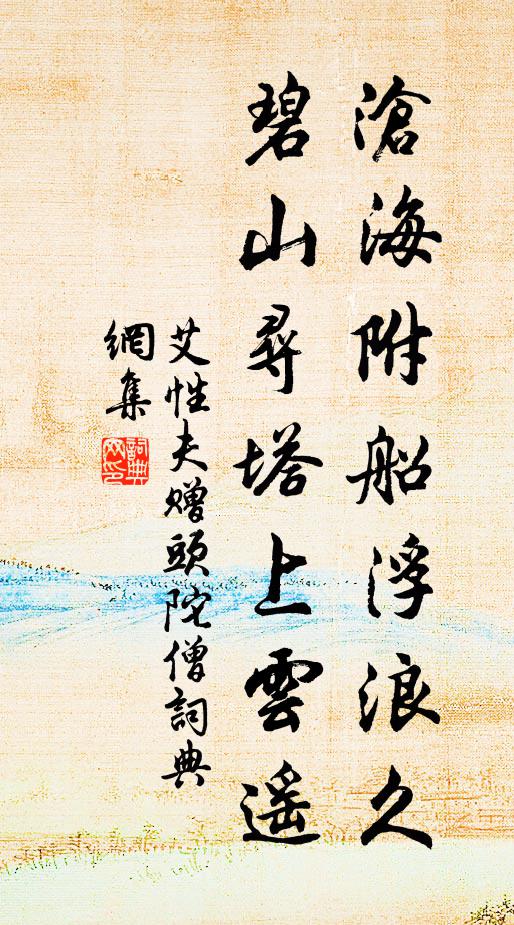 滄海附船浮浪久
碧山尋塔上雲遥
艾性夫贈頭陀僧詞典
網集
詞典
网印